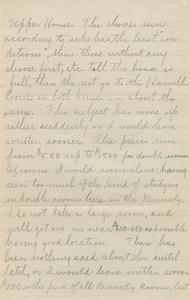 Upper House. The choices run
according to who has the least "con-
ditions", thus those without any
choose first, etc. till the house is
full, then the rest go to the Harwell.
Rooms in both houses run about the
same. The subject has come up
rather suddenly or I would have
written sooner. The prices run
from $550 up to $1500 for double rooms
Of course I would room alone having
seen too much of the kind of studying
in double rooms here in the Kennedy.
I do not like a large room, and
will get one as near $500-550 as possible
having good location. There has
been nothing said about this until
lately, or I would have written sooner.
$700 is the price of all Kennedy Rooms, but